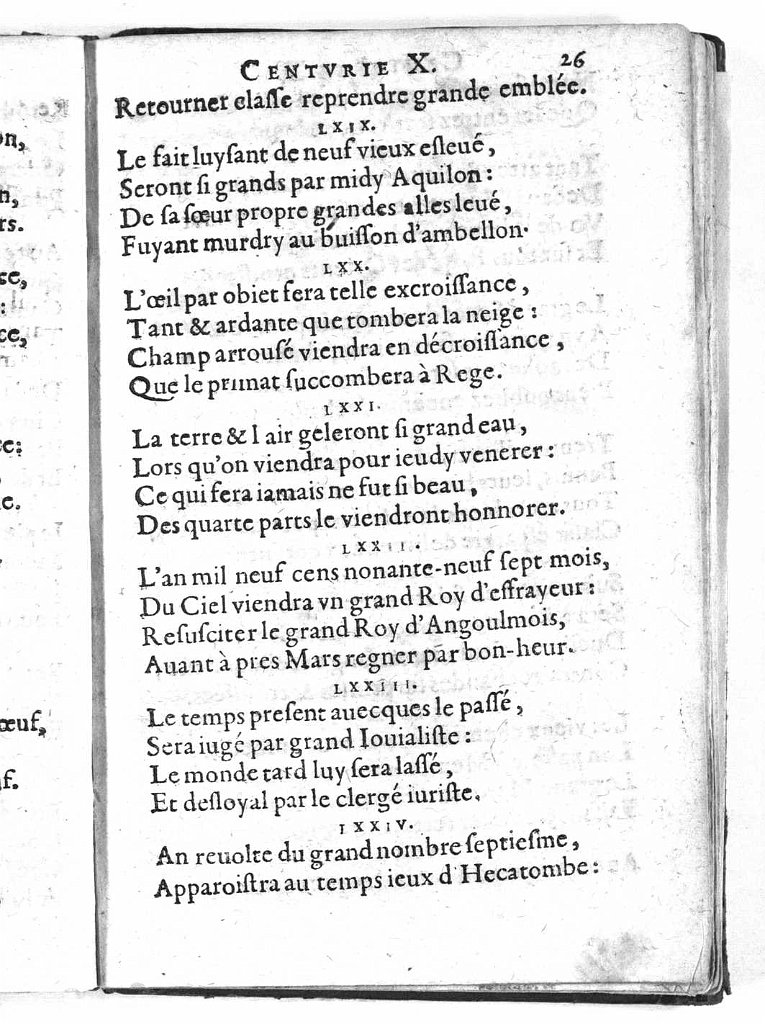 on,
n,
rs.
ce,
:
ce,
te:
e.
œuf,
uf.
CENTVRIE X. 26
Retourner claſſe reprendre grande emblée.
LXIX.
Le fait luyſant de neuf vieux eſleué,
Seront ſi grands par midy Aquilon:
De ſa ſœur propre grandes alles leué,
Fuyant murdry au buiſſon d'ambellon.
LXX.
L'œil par obiet fera telle excroiſſance,
Tant & ardante que tombera la neige:
Champ arrouſé viendra en décroiſſance,
Que le primat ſuccombera à Rege.
LXXI.
La terre & l air geleront ſi grand eau,
Lors qu'on viendra pour ieudy venerer:
Ce qui ſera iamais ne fut ſi beau,
Des quarte parts le viendront honnorer.
LXXII.
L'an mil neuf cens nonante-neuf ſept mois,
Du Ciel viendra vn grand Roy d'effrayeur:
Reſuſciter le grand Roy d'Angoulmois,
Auant à pres Mars regner par bon-heur.
LXXIII.
Le temps preſent auecques le paſſé,
Sera iugé par grand Iouialiſte:
Le monde tard luy ſera laſſé,
Et deſloyal par le clergé iuriſte.
LXXIV.
An reuolte du grand nombre ſeptieſme,
Apparoiſtra au temps ieux d Hecatombe: